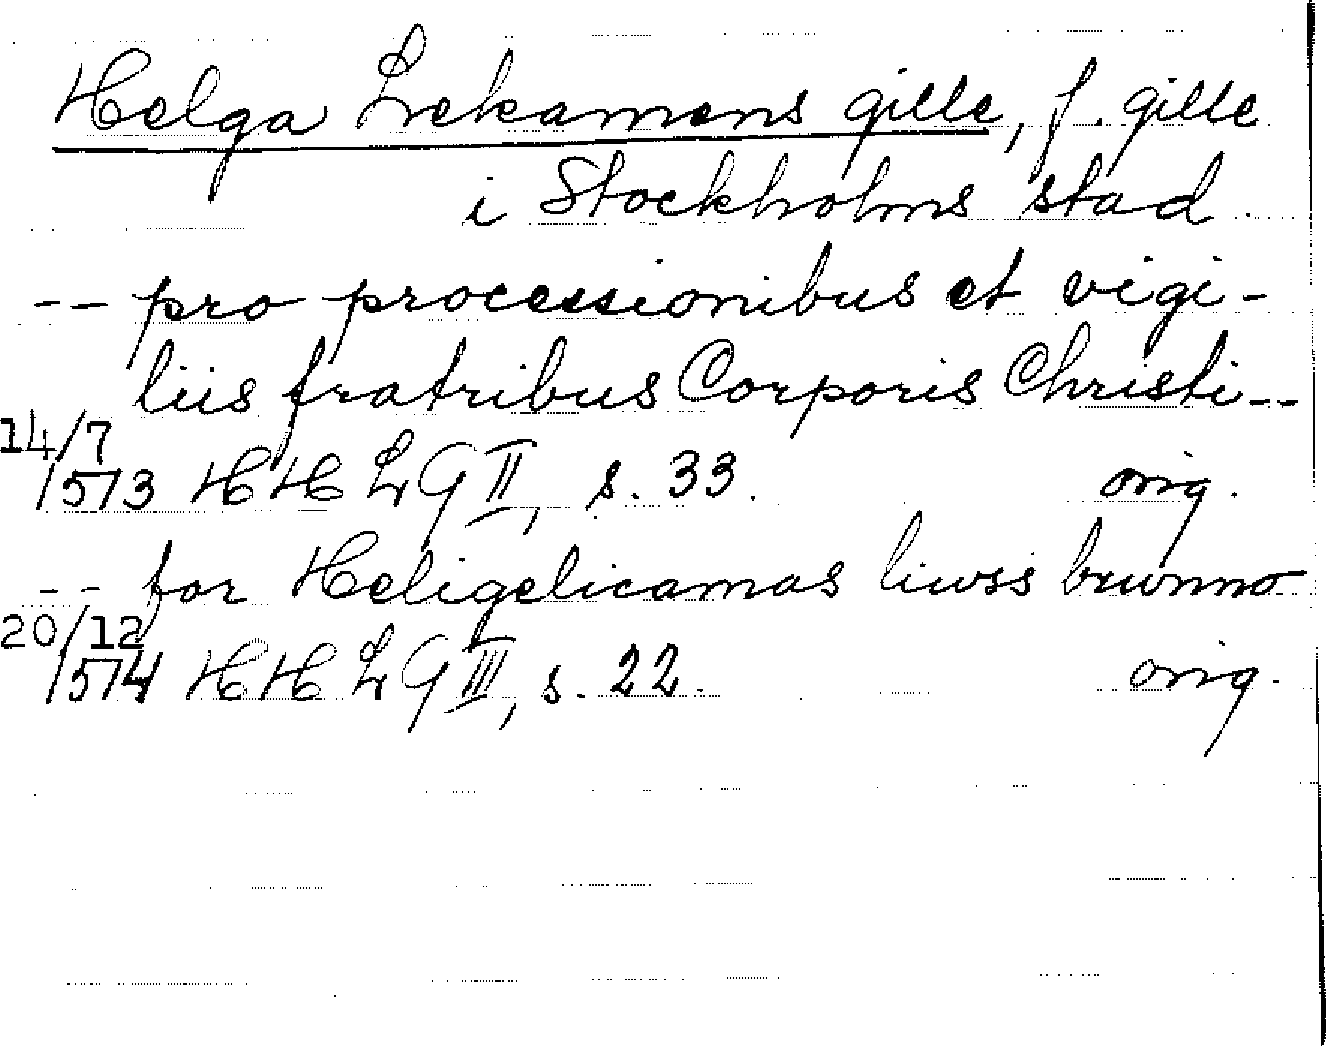 Helga Lekamens gille, f. gille
i Stockholms stad
-- pro processionibus et vigi-
liis fratribus Corporis Christi --
14/7
1573 HH LG II, s. 33. orig.
-- for Heligelicamas liwss brwnno
20/12
1574 HH LG III, s. 22. orig.